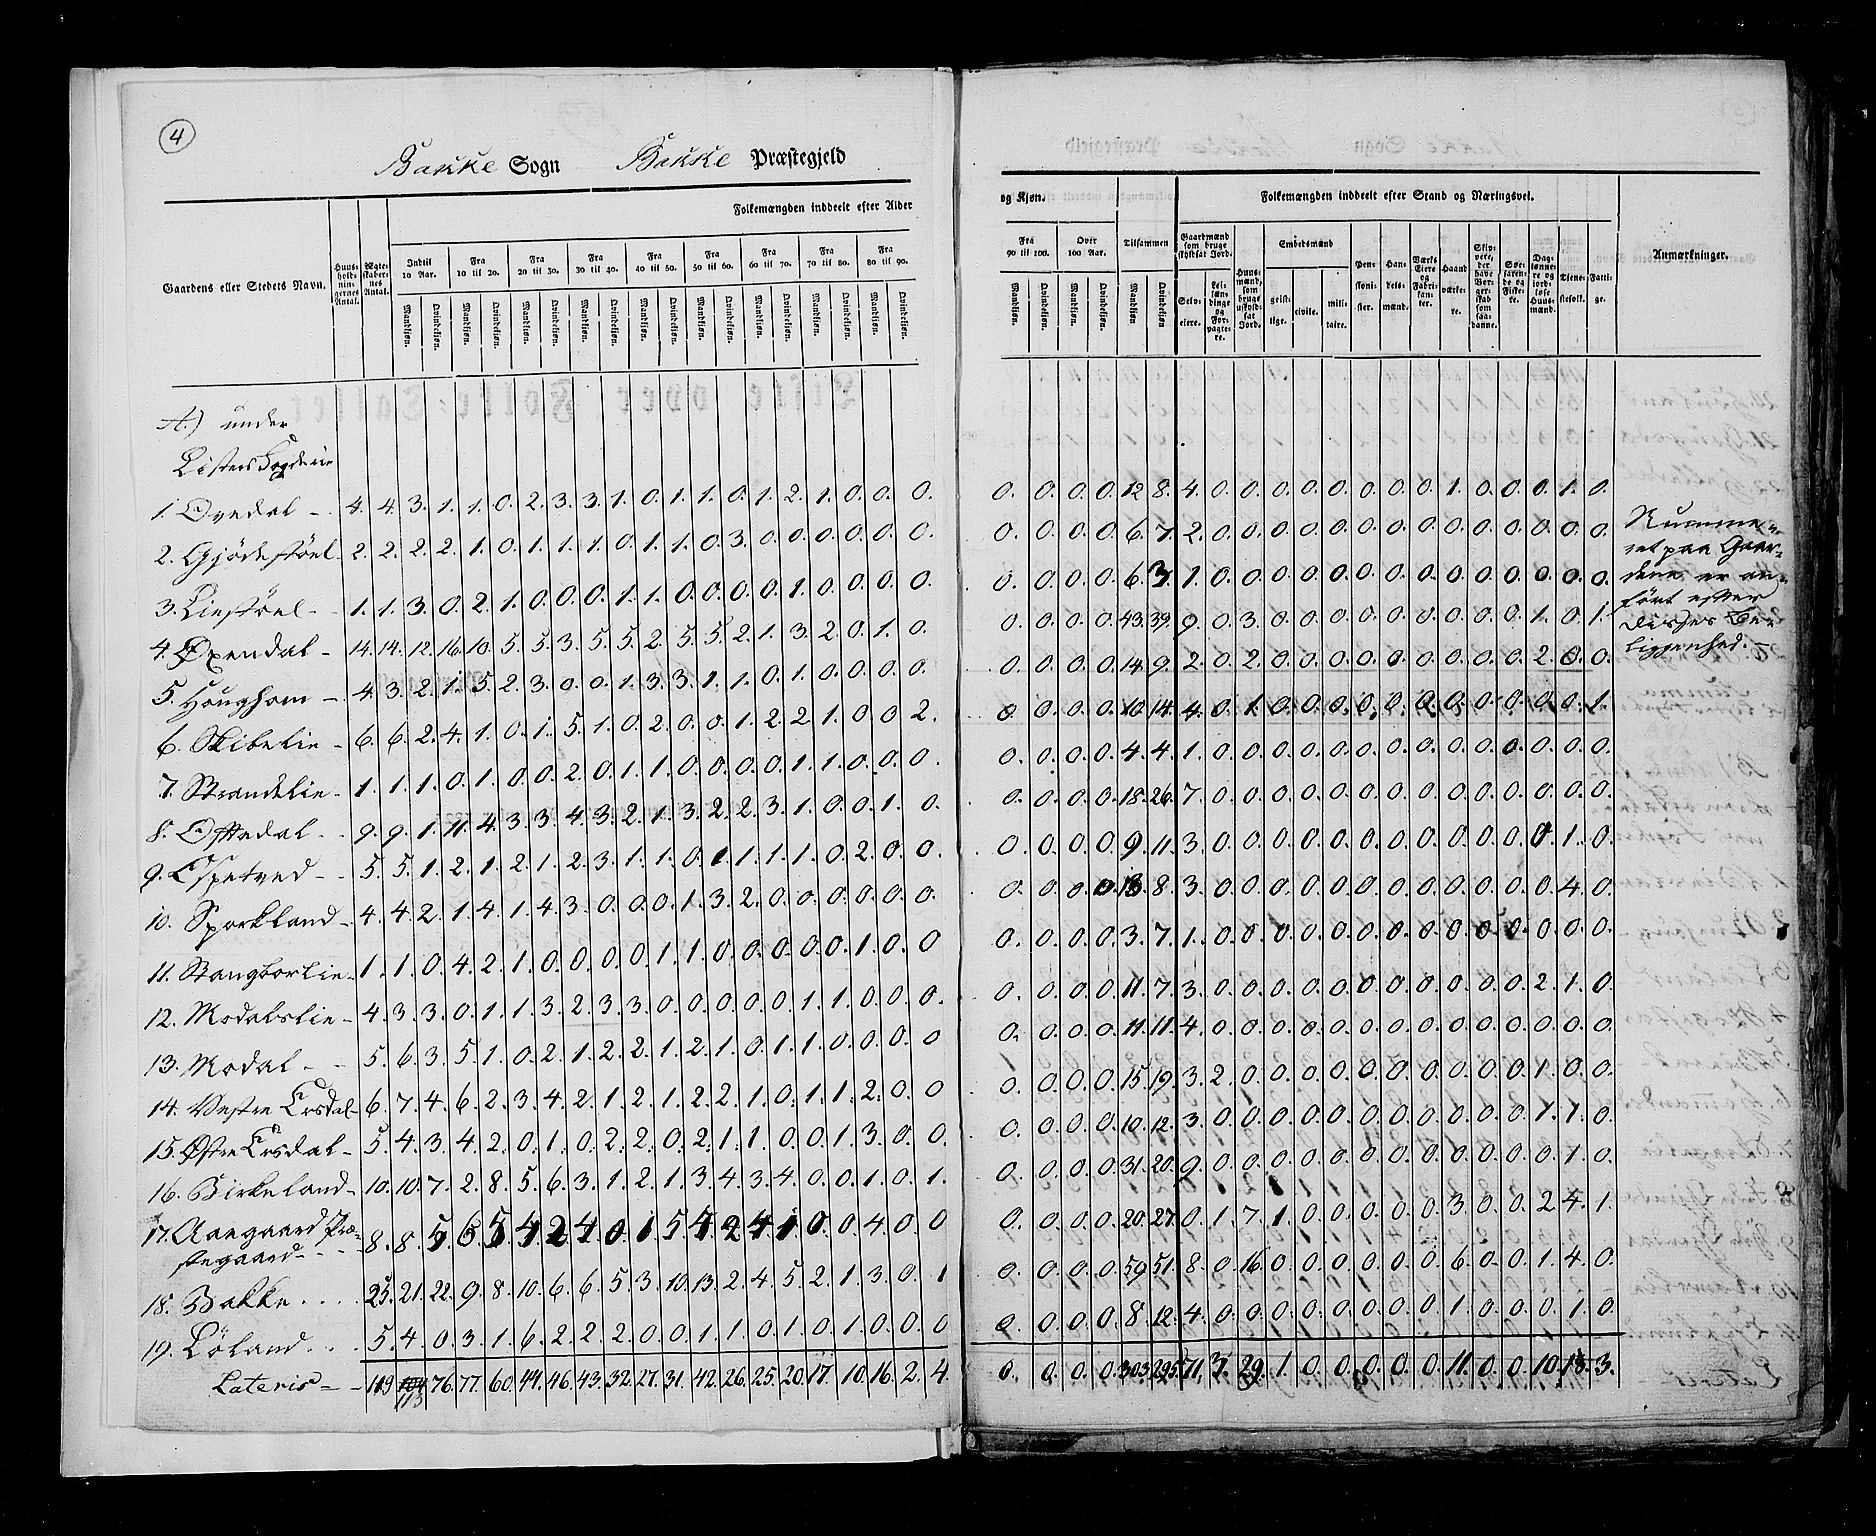 4
Bakke Sogn Bakke Præstegjeld
Gaardens eller Stedets Navn.
Huus-holdnin-gernes Antal.
Ægte-skaber-nes Antal.
Folkemængden inddeelt efter Alder
Indtil 10 Aar. Fra 10 til 20. Fra 20 til 30. Fra 30 til 40. Fra 40 til 50. Fra 50 til 60. Fra 60 til 70. Fra 70 til 80. Fra 80 til 90.
Mandkjøn. Qvindekjøn. Mandkjøn. Qvindekjøn. Mandkjøn. Qvindekjøn. Mandkjøn. Qvindekjøn. Mandkjøn. Qvindekjøn. Mandkjøn. Qvindekjøn. Mandkjøn. Qvindekjøn. Mandkjøn. Qvindekjøn. Mandkjøn. Qvindekjøn.
A.) under
Listers Fogderie
1. Ovedal - 4. 4. 3. 1. 1. 0. 2. 3. 3. 1. 0. 1. 1. 0. 1. 2. 1. 0. 0. 0.
2. Gjødestöel - 2. 2. 2. 2. 1. 0. 1. 1. 1. 0. 1. 1. 0. 3. 0. 0. 0. 0. 0. 0.
3. Liestöel - 1. 1. 3. 0. 2. 1. 0. 0. 0. 1. 1. 0. 0. 0. 0. 1. 0. 0. 0. 0.
4. Øxendal - 14. 14. 12. 16. 10. 5. 5. 3. 5. 5. 2. 5. 5. 2. 1. 3. 2. 0. 1. 0.
5. Houghom - 4. 3. 2. 1. 5. 2. 3. 0. 0. 1. 3. 3. 1. 1. 0. 1. 0. 0. 0. 0.
6. Skibelie - 6. 6. 2. 4. 1. 0. 1. 5. 1. 0. 2. 0. 0. 1. 2. 2. 1. 0. 0 2.
7. Strandelie - 1. 1. 1. 0. 1. 0. 0. 2. 0. 1. 1. 0. 0. 0. 0. 1. 1. 0. 0. 0.
8. Oftedal - 9. 9. 1. 11. 4. 3. 3. 4. 3. 2. 1. 3. 2. 2. 3. 1. 0. 0. 1. 0.
9. Espetved - 5. 5. 1. 2. 1. 2. 1. 2. 3. 1. 1. 0. 1. 1. 1. 1. 0. 2. 0. 0.
10. Sporkland - 4. 4. 2. 1. 4. 1. 4. 3. 0. 0. 0. 1. 3. 2. 0. 0. 0. 0. 0. 0.
11. Stangborlie - 1. 1. 0. 4. 2. 1. 0. 0. 0. 0. 1. 1. 0. 0. 0. 0. 0. 1. 0. 0
12. Modalslie - 4. 3. 3. 0. 1. 1. 3. 2. 3. 3. 0. 0. 0. 0. 0. 1. 1. 0. 0. 0.
13. Modal - - 5. 6. 3. 5. 1. 0. 2. 1. 2. 2. 1. 2. 1. 0. 1. 1. 0. 0. 0. 0
14. Vestre Ersdal - 6. 7. 4. 6. 2. 3. 4. 2. 1. 2. 1. 2. 2. 1. 0. 1. 1. 2. 0. 0
15. Østre Ersdal - 5. 4. 3. 4. 2. 0. 1. 0. 2. 2. 0. 2. 1. 1. 0. 0. 1. 3. 0. 0.
16. Birkeland - 10. 10. 7. 2. 8. 5. 6. 3. 1. 2. 1. 3. 4. 3. 4. 0. 0. 1. 0. 1.
17. Aaagaard Præ-
stegaard - - - 8. 8. 5. 6. 5. 4. 2. 4. 0. 1. 5. 4. 2. 4. 1. 0. 0. 4. 0. 0
18. Bakke . . . . 25. 21. 22. 9. 8. 10. 6. 6. 5. 3. 10. 13. 2. 4. 5. 2. 1. 3. 0. 1
19. Löland . . . . 5. 4. 0. 3. 1. 6. 2. 2. 2. 0. 0. 1. 1. 0. 1. 0. 1. 0. 0. 0
Lateris - - 119 113 76. 77. 60. 44. 46. 43. 32. 27. 31. 42. 26. 25. 20. 17. 10. 16. 2. 4.
og Kjøn.
Fra 90 til 100. Over 100 Aar. Tilsammen
Mandkjøn. Qvindekjøn. Mandkjøn. Qvindekjøn. Mandkjøn. Qvindekjøn
Folkemængden inddeelt efter Stand og Næringsvei.
Gaardmænd som bruge skyldsat Jord.
Selv-eiere. Lei-læn-dinge og For-pagte-re.
Huus-mænd, som bruge uskyld-sat Jord.
Embedsmænd
geist-lige. civile. mili-taire.
Pen-sioni-ster.
Han-dels-mænd.
Værks Eiere og Fabri-kan-ter.
Haand værke-re.
Skip-pere, der have Bor-ger-skab som saa-danne.
Søe-faren-de og Fiske-re.
Dag-lønne-re og jord-løse Huus-mænd.
Tjene-stefolk.
Fatti-ge.
Anmærkninger.
0. 0. 0. 0. 12 8. 4. 0. 0. 0. 0. 0. 0. 0. 0. 1. 0. 0. 0. 1. 0.
0. 0. 0. 0. 6. 7. 2. 0. 0. 0. 0. 0. 0. 0. 0. 0. 0. 0. 0. 0. 0.
0. 0. 0. 0. 6. 3. 1. 0. 0. 0. 0. 0. 0. 0. 0. 0. 0. 0. 0. 0. 0.
0. 0. 0. 0. 43. 39. 9. 0. 3. 0. 0. 0. 0. 0. 0. 0. 0. 0. 1. 0. 1.
0. 0. 0. 0. 14. 9. 2. 0. 2. 0. 0. 0. 0. 0. 0. 0. 0. 0. 2. 0. 0.
0. 0. 0. 0. 10. 14. 4. 0. 1. 0. 0. 0. 0. 0. 0. 0. 0. 0. 0. 0. 1.
0. 0. 0. 0. 4. 4. 1. 0. 0. 0. 0. 0. 0. 0. 0. 0. 0. 0. 0. 0. 0.
0. 0. 0. 0. 18. 26. 7. 0. 0. 0. 0. 0. 0. 0. 0. 0. 0. 0. 0. 0. 0.
0. 0. 0. 0. 9. 11. 3. 0. 0. 0. 0. 0. 0. 0. 0. 0. 0. 0. 0. 1. 0.
0. 0. 0. 0 13. 8. 3. 0. 0. 0. 0. 0. 0. 0. 0. 0. 0. 0. 0. 4. 0.
0. 0. 0. 0. 3. 7. 1. 0. 0. 0. 0. 0. 0. 0. 0. 0. 0. 0. 0. 0. 0.
0. 0. 0. 0. 11. 7. 3. 0. 0. 0. 0. 0. 0. 0. 0. 0. 0. 0. 2. 1. 0.
0. 0. 0. 0. 11. 11. 4. 0. 0. 0. 0. 0. 0. 0. 0. 0. 0. 0. 0. 0. 0.
0. 0. 0. 0. 15. 19. 3. 2. 0. 0. 0. 0. 0. 0. 0. 0. 0. 0. 1. 0. 0.
0. 0. 0. 0. 10. 12. 3. 0. 0. 0. 0. 0. 0. 0. 0. 0. 0. 0. 1. 1. 0.
0. 0. 0. 0. 31. 20. 9. 0. 0. 0. 0. 0. 0. 0. 0. 0. 0. 0. 0. 1. 0.
0. 0. 0. 0. 20. 27. 0. 1. 7. 1. 0. 0. 0. 0. 0. 3. 0. 0. 2. 4. 1.
0. 0. 0. 0. 59. 51. 8. 0. 16. 0. 0. 0. 0. 0. 0. 6. 0. 0. 1. 4. 0.
0. 0. 0. 0. 8. 12. 4. 0. 0. 0. 0. 0. 0. 0. 0. 1. 0. 0. 0. 1. 0.
0. 0. 0. 0. 303. 295. 71. 3. 29. 1. 0. 0. 0. 0. 0. 11. 0. 0. 10. 18. 3.
Numme-
ret paa Gaar-
dene er an-
ført efter
disses Be-
liggenhed.